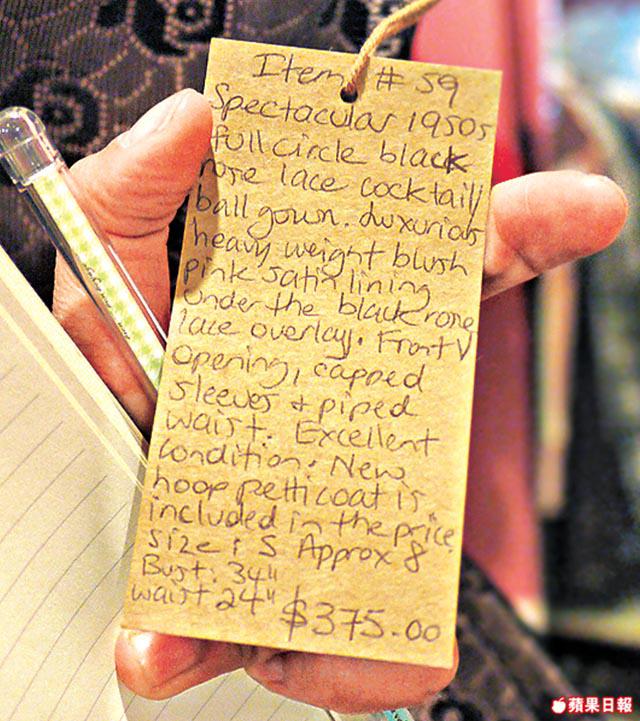 Item # 59
Spectacular 1950s
full circle black
rose lace cocktail/
ball gown. Luxurious
heavy weight blush
pink satin lining
under the black rose
lace overlay. Front V
opening, capped
sleeves + piped
waist. Excellent
condition. New
hoop petticoat is
included in the price.
size: S Approx 8
Bust: 34"
waist 24" $375.00
蘋果日報